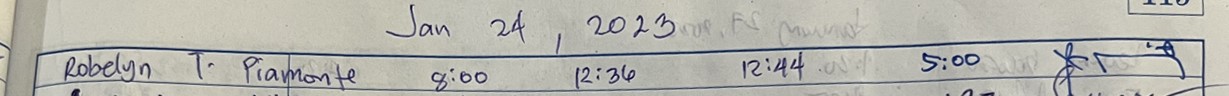 Jan 24, 2023
Robelyn T. Piamonte 8:00 12:36 12:44 5:00